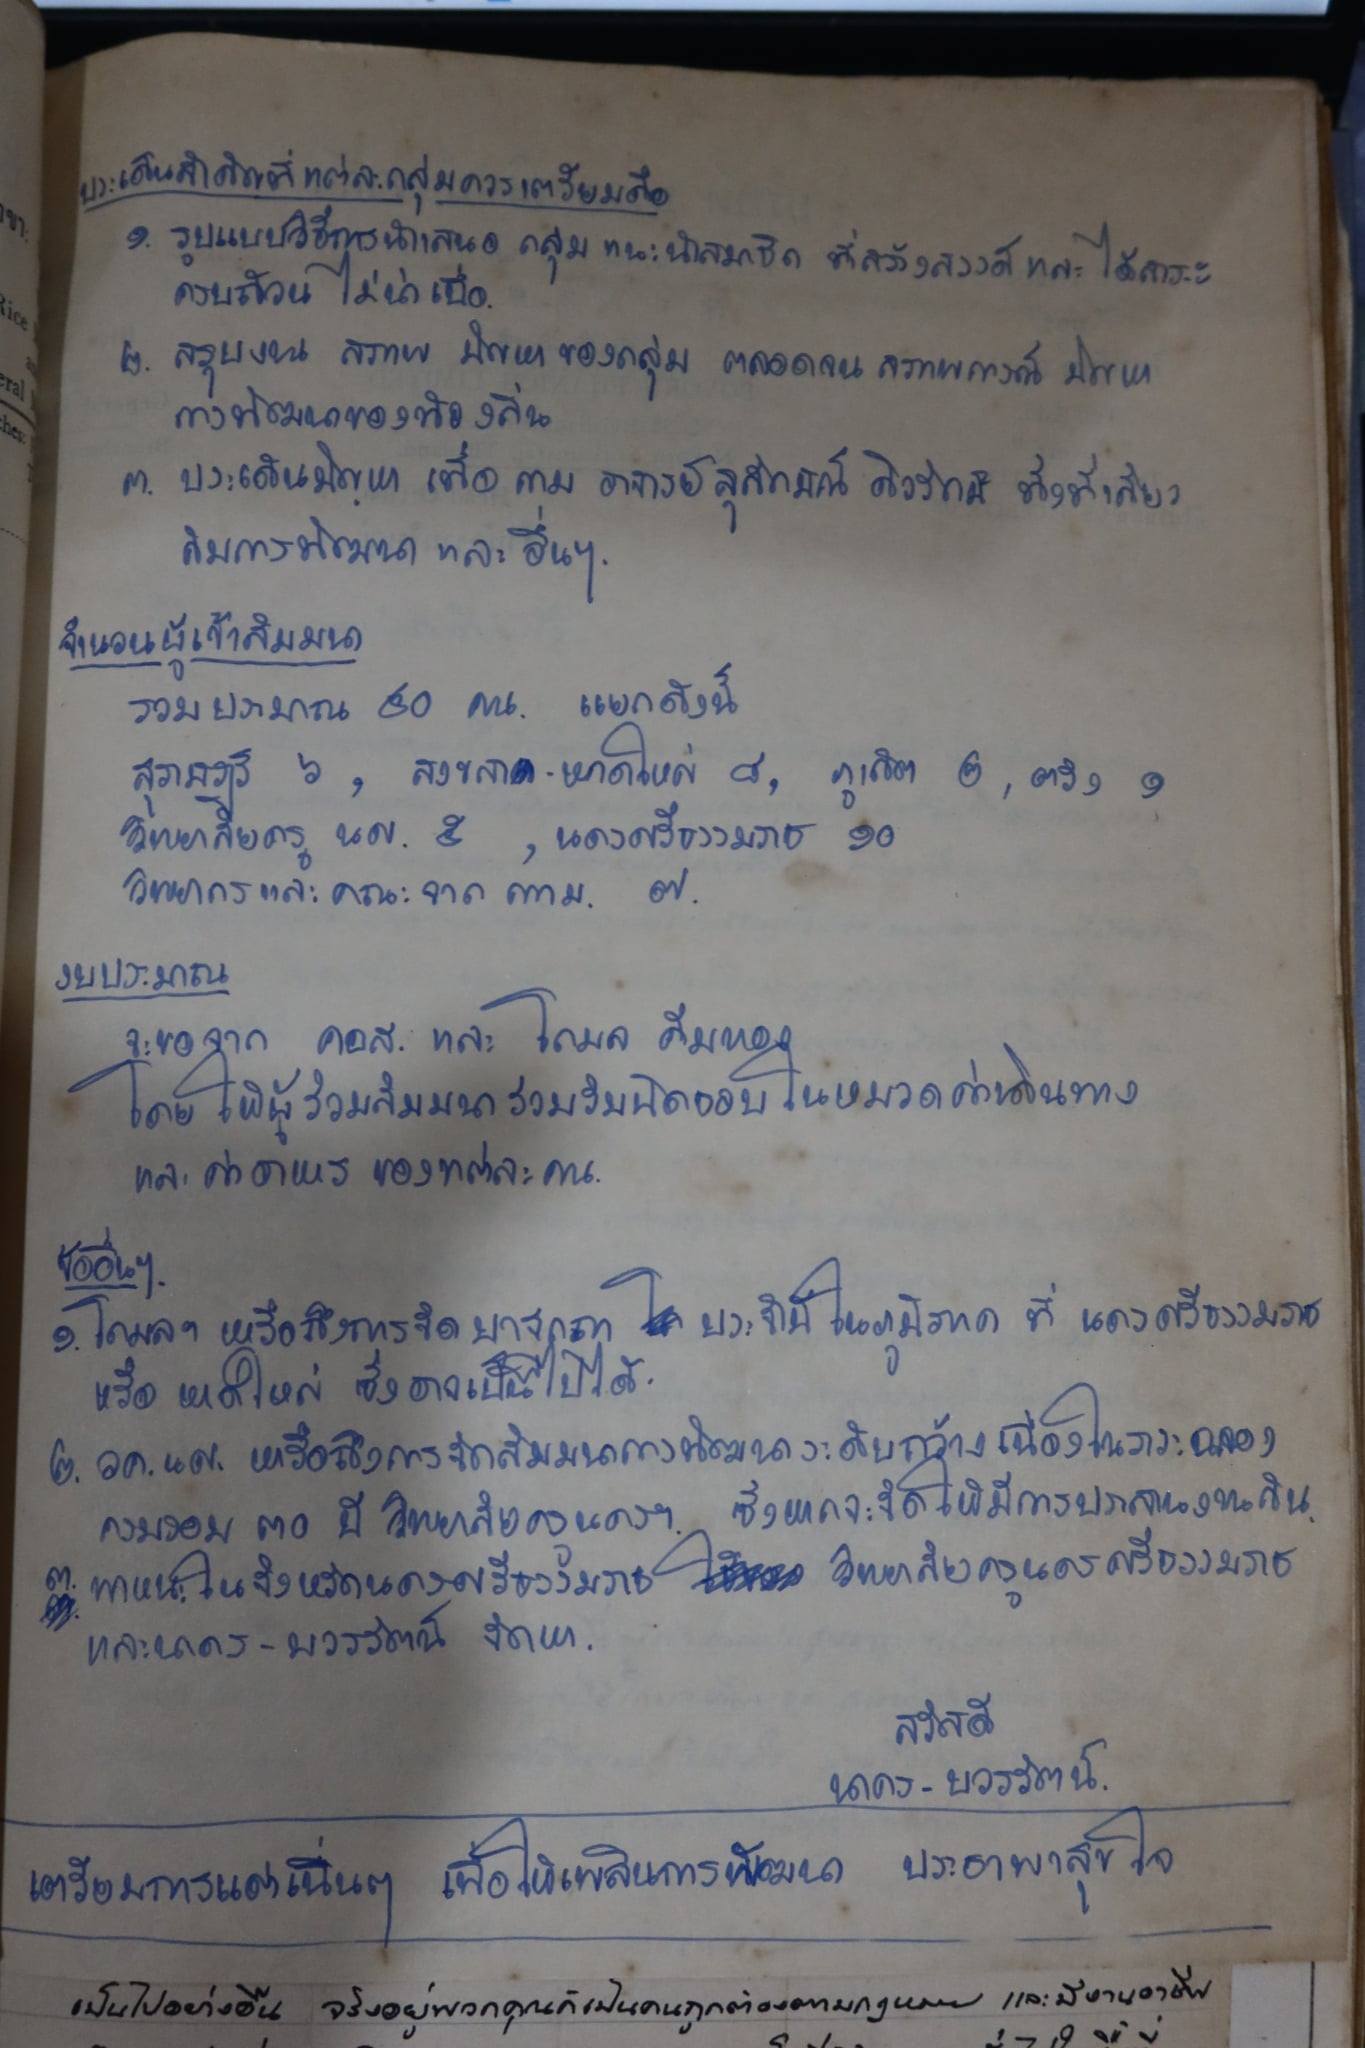 ประเด็นสำคัญที่แต่ละกลุ่มควรเตรียมคือ
๑. รูปแบบวิธีการนำเสนอ กลุ่ม แนะนำสมาชิก ที่สร้างสรรค์ และ ได้สาระ
ครบถ้วน ไม่น่าเบื่อ.
๒. สรุปงาน สภาพ ปัญหาของกลุ่ม ตลอดจน สภาพการณ์ ปัญหา
การพัฒนาของท้องถิ่น
๓. ประเด็นปัญหา เพื่อ ถาม อาจารย์สุลักษณ์ ศิวรักษ์ ทั้งที่เกี่ยว
กับการพัฒนา และ อื่นๆ.
จำนวนผู้เข้าสัมมนา
รวมประมาณ ๕๐ คน. แยกดังนี้
สุราษฎร์ ๖ , สงขลา - หาดใหญ่ ๘, ภูเก็ต ๒ , ตรัง ๑
วิทยาลัยครู นศ. ๕ , นครศรีธรรมราช ๑๐
วิทยากรและคณะจาก กทม. ๗.
งบประมาณ
จะขอจาก คอส. และ โกมล คีมทอง
โดยให้ผู้ร่วมสัมมนาร่วมรับผิดชอบในหมวดค่าเดินทาง
และ ค่าอาหาร ของแต่ละคน.
ข้ออื่นๆ.
๑. โกมลฯ หารือถึงการจัด ปาฐกถา ประจำปีในภูมิภาค ที่ นครศรีธรรมราช
หรือ หาดใหญ่ ซึ่งอาจเป็นไปได้.
๒. วค.นศ. หารือถึงการจัดสัมมนาการพัฒนาระดับกว้างเนื่องในวาระฉลอง
ครบรอบ ๓๐ ปี วิทยาลัยครูนครฯ. ซึ่งหากจะจัดให้มีการประสานงานกัน.
๓. พาหนะในจังหวัดนครศรีธรรมราช วิทยาลัยครูนครศรีธรรมราช
และนาคร - บวรรัตน์ จัดหา.
สวัสดี
นาคร - บวรรัตน์.
เตรียมการแต่เนิ่นๆ เพื่อให้เพลินการพัฒนา ประชาพาสุขใจ
เป็นไปอย่างอื่น จริงอยู่พวกคุณก็เป็นคนถูกต้องตามกฎหมาย และมีงานอาชีพ